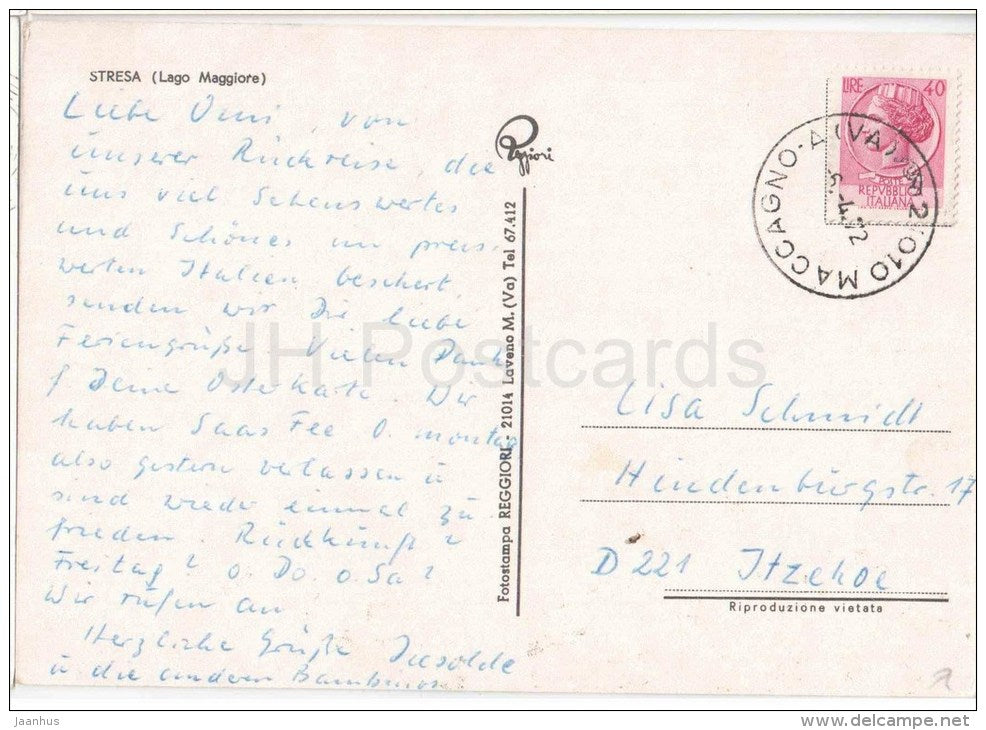 STRESA (Lago Maggiore)
Liebe Omi, von
unserer Rückreise, die
uns viel Sehenswertes
und Schönes im preis-
werten Italien beschert,
senden wir Dir liebe
Feriengrüße. Vielen Dank
f Deine Osterkarte. Wir
haben Saas Fee O. montag
also gestern verlassen u
sind wieder einmal zu
frieden. Rückkunft ?
Freitag? o. Do. o. Sa?
Wir rufen an
Herzliche Grüße Isolde
u die anderen Bambinos
Reggiori
Fotostampa REGGIORI - 21014 Laveno M. (Va) Tel 67.412
LIRE 40
POSTE
REPVBBLICA
ITALIANA
21010 MACCAGNO-A (VA)
-4.72
Lisa Schmidt
Hindenburgstr. 17
D 221 Itzehoe
Riproduzione vietata
JH Postcards
Jaanhus
www.delcampe.net